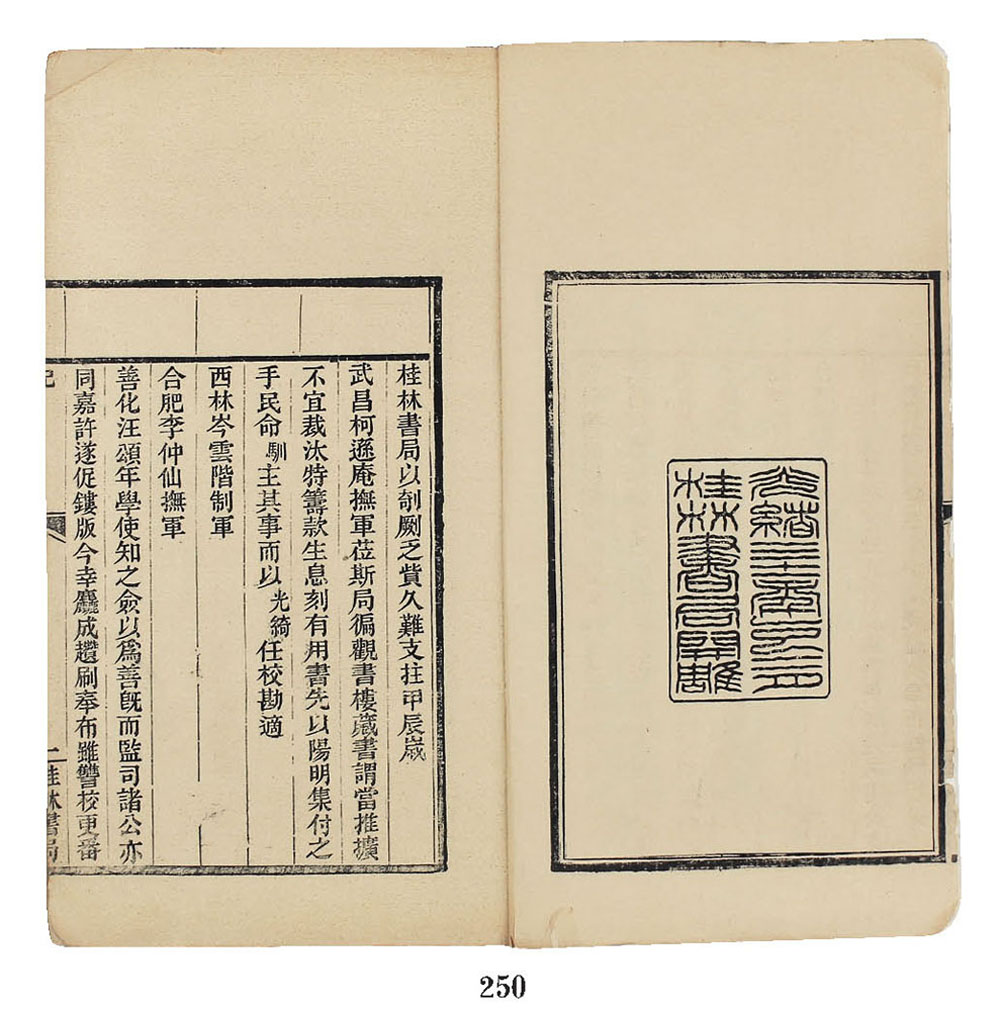 光緒三十
桂林書局開雕
桂林書局以剞劂乏貲久難支拄甲辰歲
武昌柯遜庵撫軍莅斯局徧觀書樓藏書謂當推擴
不宜裁汰特籌款生息刻有用書先以陽明集付之
手民命馴主其事而以光綺任校勘適
西林岑雲階制軍
合肥李仲仙撫軍
善化汪頌年學使知之僉以爲善旣而監司諸公亦
同嘉許遂促鏤版今幸麤成趲刷奉布雖讐校更番
二 桂林書局
250